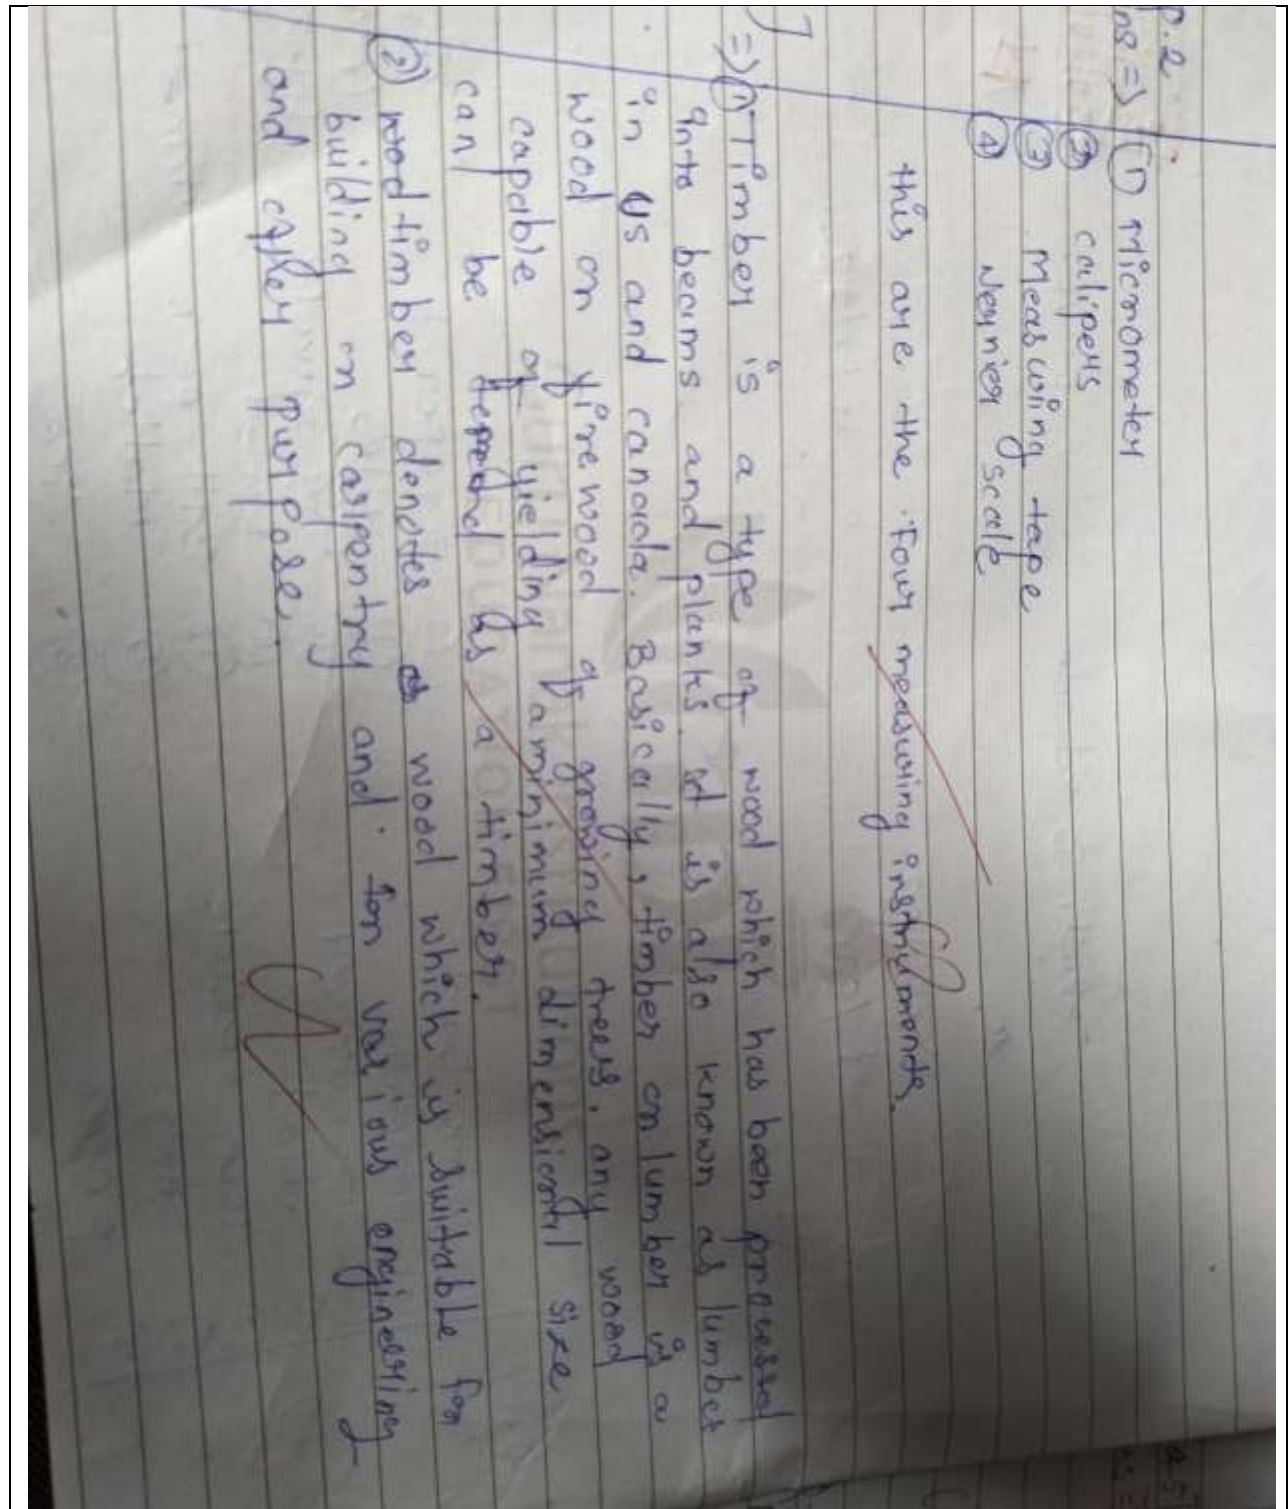 P.2
ns => ① Micrometer
② calipers
③ Measuring tape
④ Vernier scale
this are the Four measuring instruments.
=> ① Timber is a type of wood which has been processed
into beams and planks. it is also known as lumber
in US and canada. Basically, timber or lumber is a
wood or firewood of growing trees. any wood
capable of yielding a minimum dimensional size
can be as a timber.
② word timber denotes wood which is suitable for
building or carpentry and for various engineering
and other purpose.